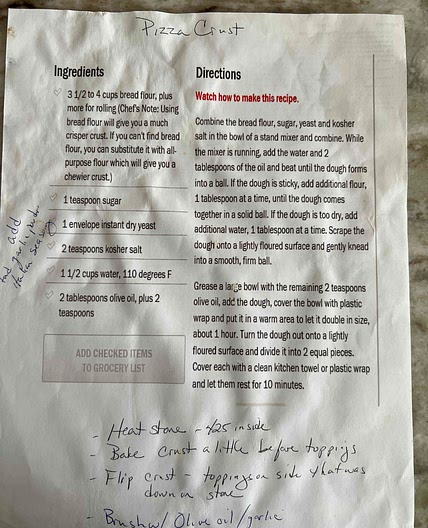 Pizza Crust
Ingredients
3 1/2 to 4 cups bread flour, plus
more for rolling (Chef's Note: Using
bread flour will give you a much
crisper crust. If you can't find bread
flour, you can substitute it with all-
purpose flour which will give you a
chewier crust.)
1 teaspoon sugar
1 envelope instant dry yeast
2 teaspoons kosher salt
1 1/2 cups water, 110 degrees F
2 tablespoons olive oil, plus 2
teaspoons
ADD CHECKED ITEMS
TO GROCERY LIST
add
garlic
Italian
Directions
Watch how to make this recipe.
Combine the bread flour, sugar, yeast and kosher
salt in the bowl of a stand mixer and combine. While
the mixer is running, add the water and 2
tablespoons of the oil and beat until the dough forms
into a ball. If the dough is sticky, add additional flour,
1 tablespoon at a time, until the dough comes
together in a solid ball. If the dough is too dry, add
additional water, 1 tablespoon at a time. Scrape the
dough onto a lightly floured surface and gently knead
into a smooth, firm ball.
Grease a large bowl with the remaining 2 teaspoons
olive oil, add the dough, cover the bowl with plastic
wrap and put it in a warm area to let it double in size,
about 1 hour. Turn the dough out onto a lightly
floured surface and divide it into 2 equal pieces.
Cover each with a clean kitchen towel or plastic wrap
and let them rest for 10 minutes.
- Heat Stone - 425 inside
- Bake Crust a little before toppings
- Flip crust - toppings on side that was
down on stone
- Brush w/ Olive oil/garlic